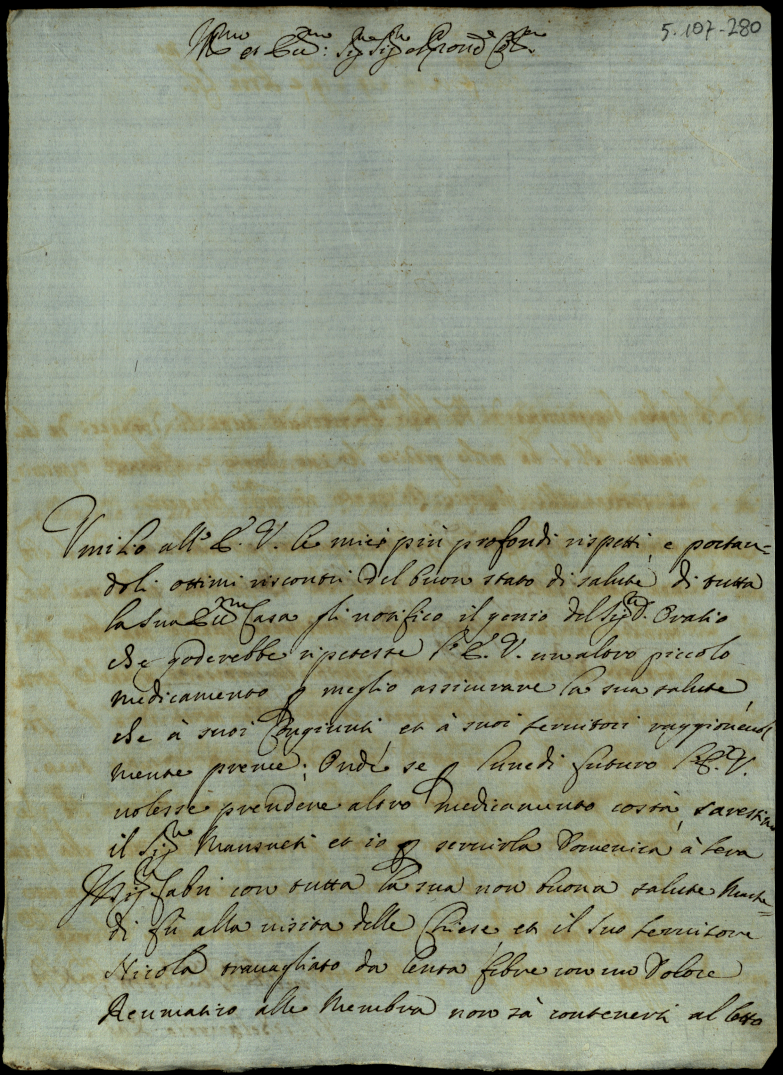 5.107-280
Ill.mo et Ecc.mo Sig.re Sig.re e Prone Col.mo
Umilio all'E. V. li miei più profondi rispetti, e portan=
doli ottimi riscontri del buon stato di salute di tutta
la sua Ecc.ma Casa gli notifico il genio del Sig.r D. Oratio
che goderebbe ripetesse l'E. V. un altro piccolo
medicamento p meglio assicurare la sua salute,
che à suoi Congiunti et à suoi servitori raggionevol
mente preme; Onde se p lunedi futuro l'E. V.
volesse prendere altro medicamento costà, saressimo
il Sig.re Mansueti et io p servirla Domenica à sera
Il Sig.r Fabri con tutta la sua non buona salute Marte=
di fù alla visita delle Chiese et il suo servitore
Nicola travagliato da lenta febre con un dolore
Reumatico alle Membra non sà contenersi al letto